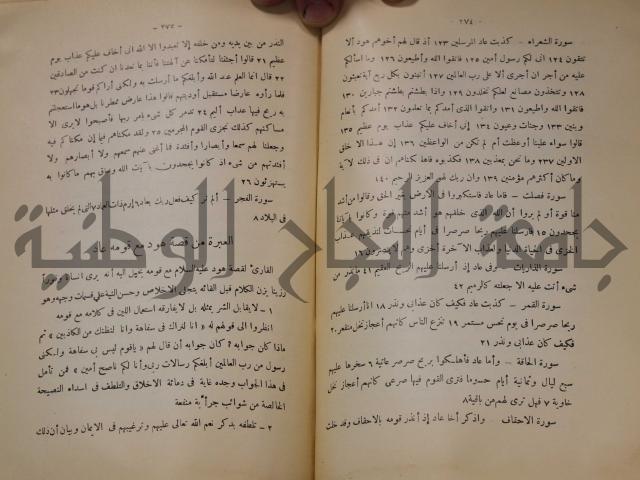 — ٢٧٤ —
سورة الشعراء – كذبت عاد المرسلين ١٢٣ إذ قال لهم أخوهم هود ألا
تتقون ١٢٤ انى لكم رسول أمين ١٢٥ فاتقوا الله وأطيعون ١٢٦ وما أسألكم
عليه من أجر ان أجرى إلا على رب العالمين ١٢٧ أتبنون بكل ريع آية تعبثون
١٢٨ وتتخذون مصانع لعلكم تخلدون ١٢٩ واذا بطشتم بطشتم جبارين ١٣٠
فاتقوا الله وأطيعون ١٣١ واتقوا الذى أمدكم بما تعلمون ١٣٢ أمدكم بأنعام
وبنين ١٣٣ وجنات وعيون ١٣٤ إنى أخاف عليكم عذاب يوم عظيم ١٣٥
قالوا سواء علينا أوعظت أم لم تكن من الواعظين ١٣٦ إن هذا الا خلق
الاولين ٢٣٧ وما نحن بمعذبين ١٣٨ فكذبوه فأهلكناهم ان فى ذلك لآية
وما كان أكثرهم مؤمنين ١٣٩ وان ربك لهو العزيز الرحيم ١٤٠
سورة فصلت – فاما عاد فاستكبروا فى الارض بغير الحق وقالوا من أشد
منا قوة أو لم يروا أن الله الذى خلقهم هو أشد منهم قوة وكانوا بآياتنا
يجحدون ١٥ فأرسلنا عليهم ريحا صرصرا فى أيام نحسات لنذيقهم عذاب
الخزى فى الحياة الدنيا ولعذاب الآخرة أخزى وهم لا ينصرون ١٦
سورة الذاريات – وفى عاد إذ أرسلنا عليهم الريح العقيم ٤١ ما تذر من
شىء أتت عليه الا جعلته كالرميم ٤٢
سورة القمر – كذبت عاد فكيف كان عذابى ونذر ١٨ انا أرسلنا عليهم
ريحا صرصرا فى يوم نحس مستمر ١٩ تنزع الناس كأنهم أعجاز نخل منقعر ٢٠
فكيف كان عذابى ونذر ٢١
سورة الحاقة – وأما عاد فأهلكوا بريح صرصر عاتية ٦ سخرها عليهم
سبع ليال وثمانية أيام حسوما فترى القوم فيها صرعى كأنهم أعجاز نخل
خاوية ٧ فهل ترى لهم من باقية ٨
سورة الاحقاف – واذكر أخا عاد إذ أنذر قومه بالاحقاف وقد خلت
— ٢٧٥ —
النذر من بين يديه ومن خلفه إلا تعبدوا الا الله انى أخاف عليكم عذاب يوم
عظيم ٢١ قالوا أجئتنا لتأفكنا عن آلهتنا فأتنا بما تعدنا ان كنت من الصادقين
٢٢ قال انما العلم عند الله وأبلغكم ما أرسلت به ولكنى أراكم قوما تجهلون ٢٣
فلما رأوه عارضا مستقبل أوديتهم قالوا هذا عارض ممطرنا بل هو ما استعجلتم
به ريح فيها عذاب أليم ٢٤ تدمر كل شىء بأمر ربها فأصبحوا لا يرى الا
مساكنهم كذلك نجزى القوم المجرمين ٢٥ ولقد مكناهم فيما إن مكناكم فيه
وجعلنا لهم سمعا وأبصارا وأفئدة فما أغنى عنهم سمعهم ولا أبصارهم ولا
أفئدتهم من شىء اذ كانوا يجحدون بآيات الله وحاق بهم ما كانوا به
يستهزئون ٢٦
سورة الفجر – ألم تر كيف فعل ربك بعاد ٦ إرم ذات العماد ٧ التى لم يخلق مثلها
فى البلاد ٨
العبرة من قصة هود مع قومه عاد
القارئ لقصة هود عليه السلام مع قومه يخيل اليه أنه يرى انسانا
رزينا يزن الكلام قبل القائه يتجلى الاخلاص وحسن النية على قسمات وجهه وهو
١ – لا يقابل الشر بمثله بل لا يفارقه استعمال اللين فى كلامه مع قومه
انظروا الى قولهم له « انا لنراك فى سفاهة وانا لنظنك من الكاذبين » ثم
ماذا كان جوابه ؟ كان جوابه أن قال لهم « ياقوم ليس بى سفاهة ولكنى
رسول من رب العالمين أبلغكم رسالات ربى وأنا لكم ناصح أمين » فمن تأمل
فى هذا الجواب وجده غاية فى دماثة الاخلاق والتلطف فى اسداء النصيحة
الخالصة من شوائب جر أية منفعة
٢ – تلطفه بذكر نعم الله تعالى عليهم وترغيبهم فى الايمان وبيان أن ذلك
جامعة النجاح الوطنية